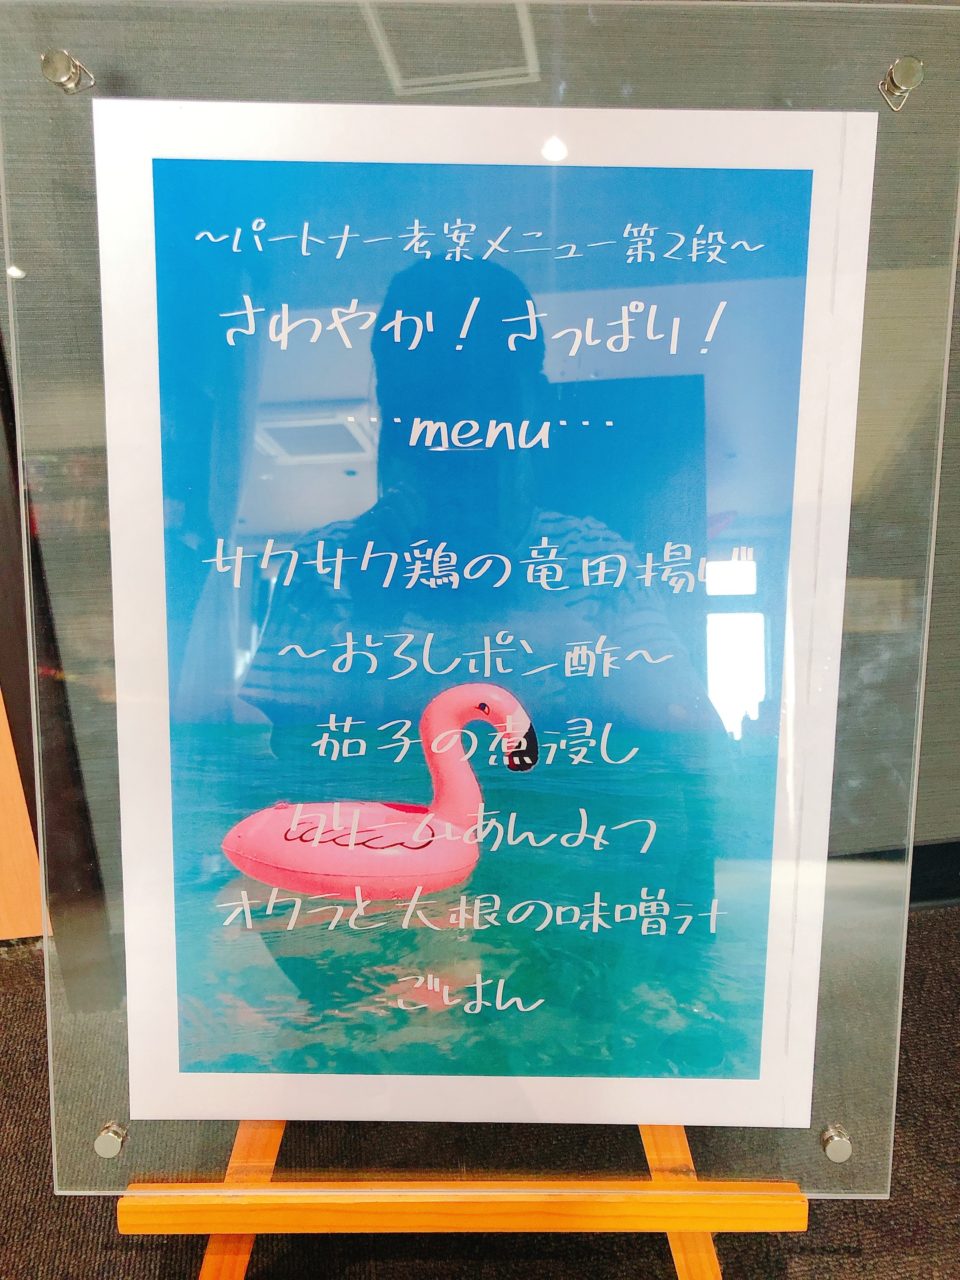 ～パートナー考案メニュー第2段～
さわやか！さっぱり！
…menu…
サクサク鶏の竜田揚げ
～おろしポン酢～
茄子の煮浸し
クリームあんみつ
オクラと大根の味噌汁
ごはん